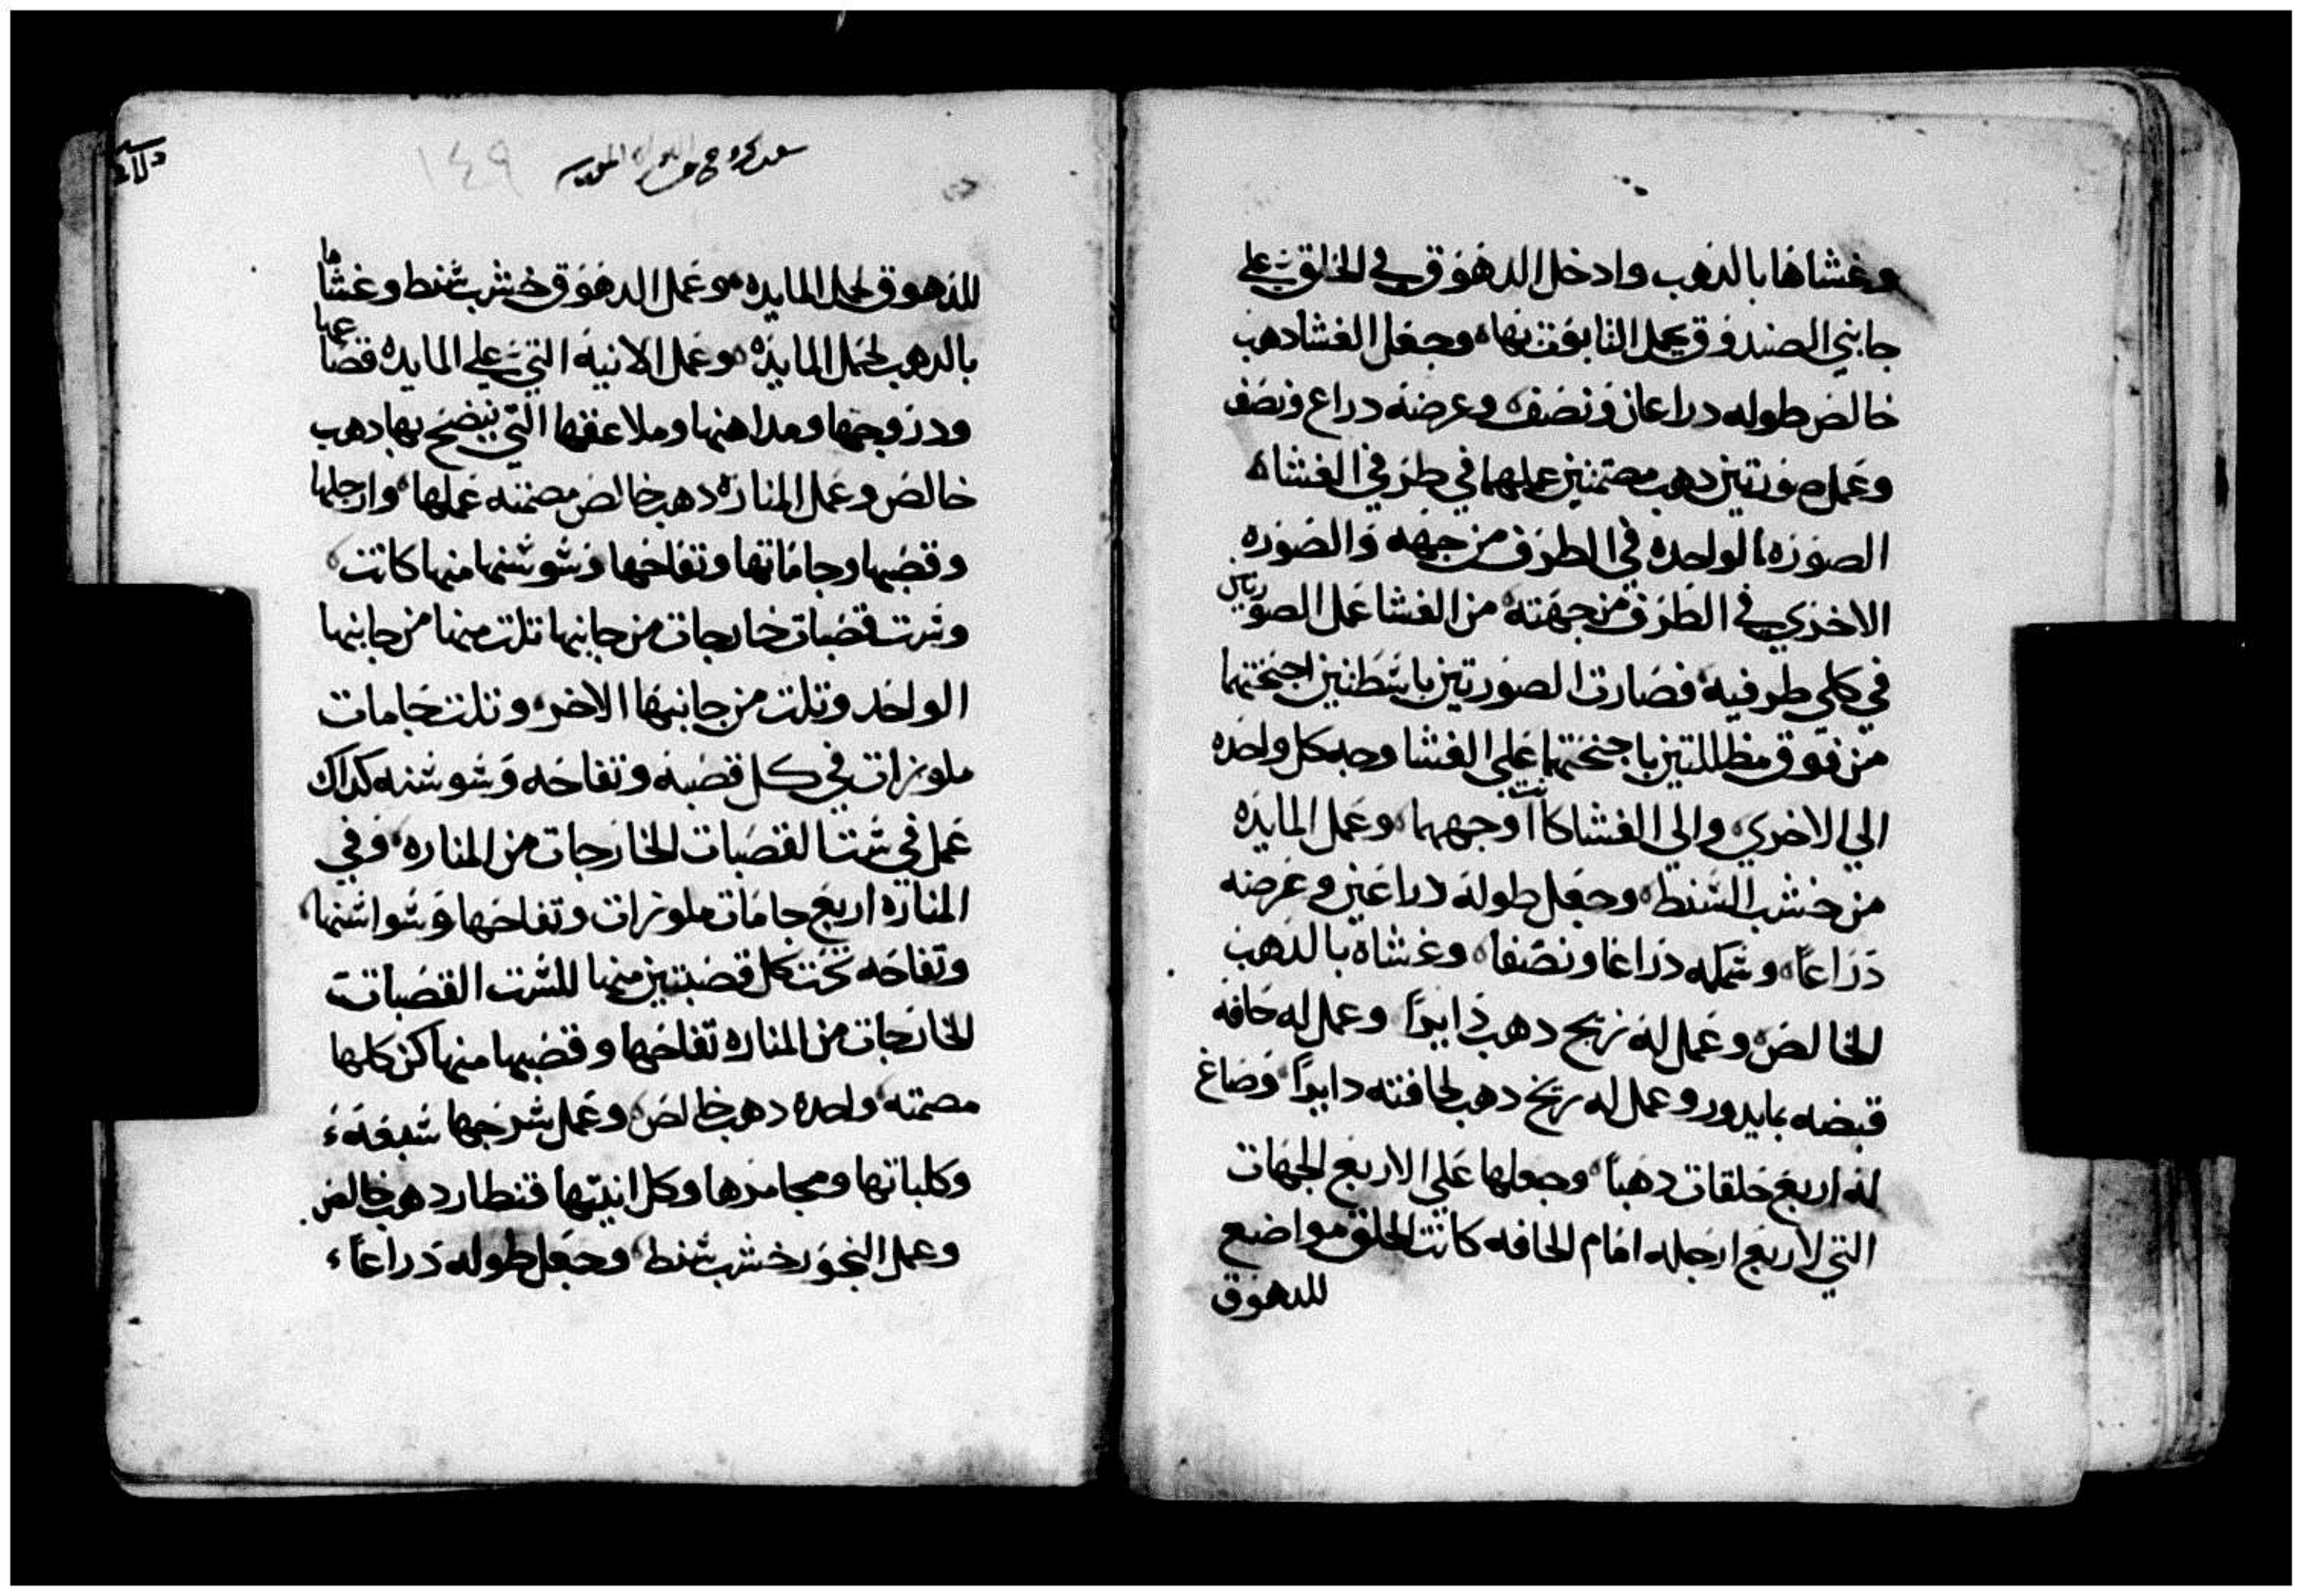 وغشاها بالدهب وادخل الدهوق في الحلق علي
جانبي الصندوق يحمل التابوت بها وجعل الغشا دهب
خالص طوله دراعان ونصف وعرضه دراع ونصف
وعمل صورتين دهب مصمتين عملهما في طرفي الغشاه
الصوره الواحده في الطرف من جهه والصوره
الاخري في الطرف من جهته من الغشا عمل الصورتين
في كلي طرفيه فصارت الصورتين باسطنين اجنحتهما
من فوق مظللتين باجنحتهما علي الغشا وجه كل واحده
الي الاخري والي الغشا كانت اوجههما وعمل المايده
من خشب السنط وجعل طوله دراعين وعرضه
دراعاً وسمكه دراعا ونصفا وغشاه بالدهب
الخالص وعمل له زيج دهب دايراً وعمل له حافه
قبضه بما يدور وعمل له زيج دهب لحافته دايراً وصاغ
له اربع حلقات دهباً وجعلها علي الاربع الجهات
التي لاربع ارجله امام الحافه كانت الحلق مواضع
للدهوق
١٤٩
للدهوق لحمل المايده وعمل الدهوق خشب سنط وغشاها
بالدهب لحمل المايده وعمل الانيه التي علي المايده قصاعها
ودروجها ومداهنها وملاعقها التي ينضح بها دهب
خالص وعمل المناره دهب خالص مصمته عملها وارجلها
وقصبها وجاماتها وتفاحها وسوسنها منها كانت
وست قصبات خارجات من جانبها تلت منها من جانبها
الواحد وتلت من جانبها الاخر وتلت جامات
ملوزات في كل قصبه وتفاحه وسوسنه كداك
عمل في ست القصبات الخارجات من المناره وفي
المناره اربع جامات ملوزات وتفاحها وسواسنها
وتفاحه تحت كل قصبتين منها للست القصبات
الخارجات من المناره تفاحها وقصبها منها كن كلها
مصمته واحده دهب خالص وعمل سرجها سبعة
وكلباتها ومجامرها وكل انيتها قنطار دهب خالص
وعمل البخور خشب سنط وجعل طوله دراعاً